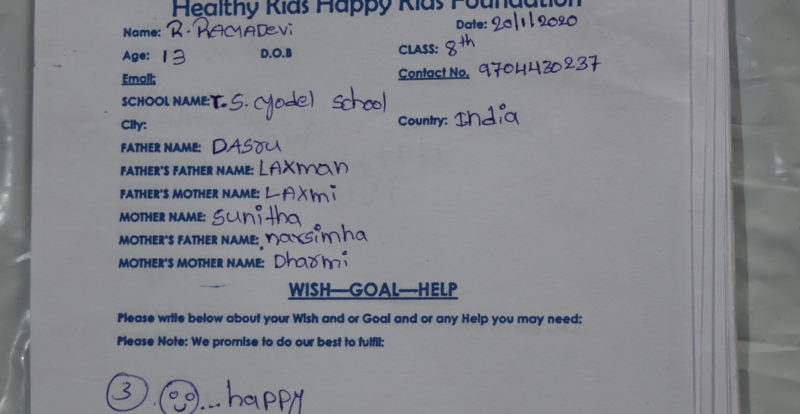 Healthy Kids Happy Kids Foundation
Name: R. RAMADEVi Date: 20/1/2020
Age: 13 D.O.B CLASS: 8th
Email: Contact No. 9704430237
SCHOOL NAME: T.S. Model School
City: Country: India
FATHER NAME: DASru
FATHER'S FATHER NAME: LAXman
FATHER'S MOTHER NAME: LAXmi
MOTHER NAME: Sunitha
MOTHER'S FATHER NAME: narsimha
MOTHER'S MOTHER NAME: Dharmi
WISH—GOAL—HELP
Please write below about your Wish and or Goal and or any Help you may need:
Please Note: We promise to do our best to fulfil:
3 . ... happy